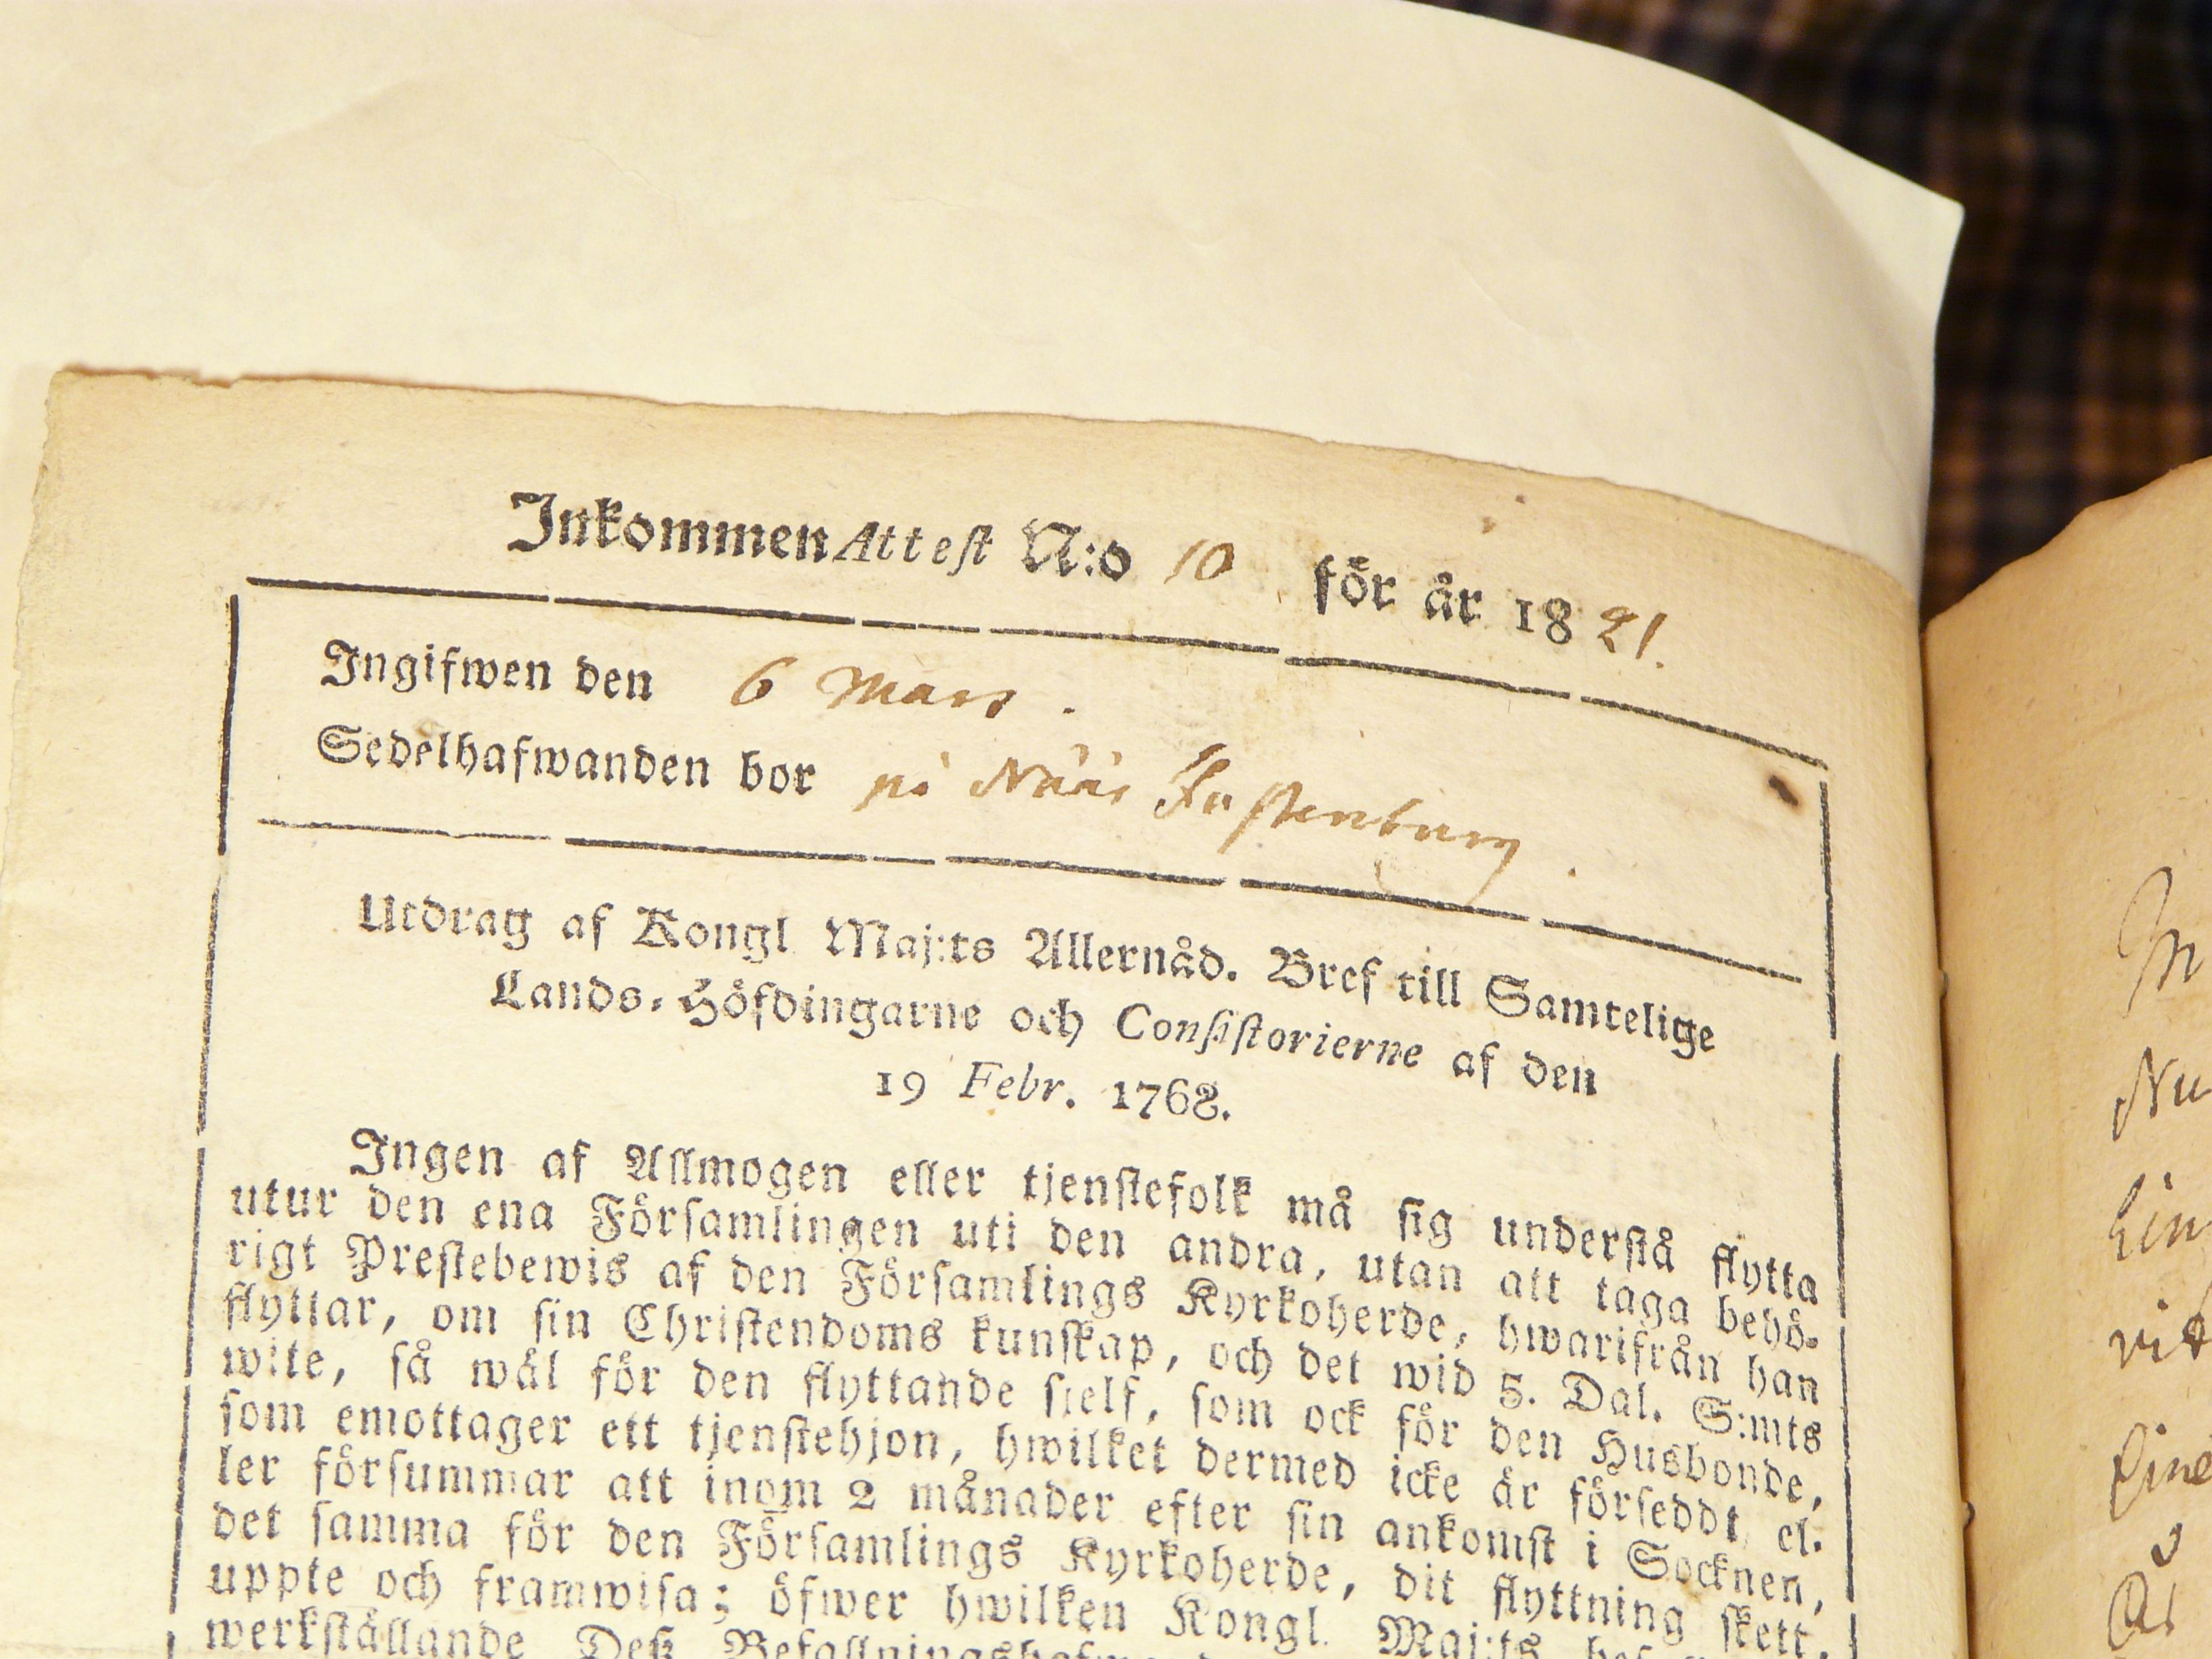 Inkommen Attest N:o 10 för år 1821.
Ingifwen den 6 Mars.
Sedelhafwanden bor på Nääs Fastenburg.
Utdrag af Kongl. Maj:ts Allernåd. Bref till Samtelige
Lands-Höfdingarne och Consistorierne af den
19 Febr. 1768.
Ingen af Allmogen eller tjenstefolk må sig understå flytta
utur den ena Församlingen uti den andra, utan att taga behö-
rigt Prestebewis af den Församlings Kyrkoherde, hwarifrån han
flyttar, om sin Christendoms kunskap, och det wid 5. Dal. S:mts
wite, så wäl för den flyttande sjelf, som ock för den Husbonde,
som emottager ett tjenstehjon, hwilket dermed icke är förseddt el-
ler försummar att inom 2 månader efter sin ankomst i Socknen,
det samma för den Församlings Kyrkoherde, dit flyttning skett,
uppte och framwisa; öfwer hwilken Kongl. Maj:ts
werkställande Deß
M
Nu